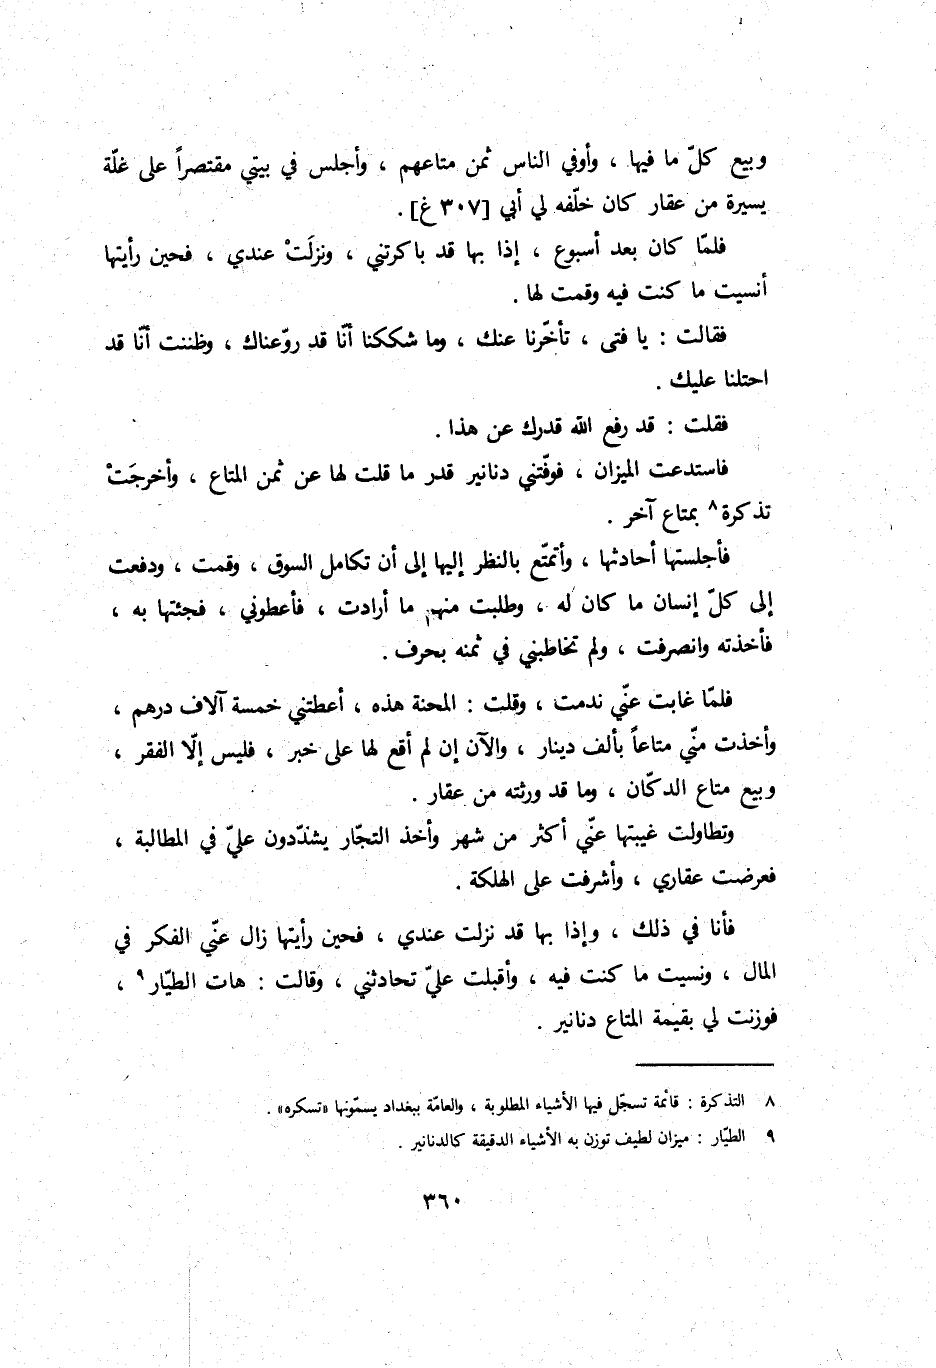 وبيع كلّ ما فيها ، وأوفي الناس ثمن متاعهم ، وأجلس في بيتي مقتصراً على غلّة
يسيرة من عقار كان خلّفه لي أبي [٣٠٧ غ] .
فلمّا كان بعد أسبوع ، إذا بها قد باكرتني ، ونزلَتْ عندي ، فحين رأيتها
أنسيت ما كنت فيه وقمت لها .
فقالت : يا فتى ، تأخّرنا عنك ، وما شككنا أنّا قد روّعناك ، وظننت أنّا قد
احتلنا عليك .
فقلت : قد رفع الله قدرك عن هذا .
فاستدعت الميزان ، فوفّتني دنانير قدر ما قلت لها عن ثمن المتاع ، وأخرجَتْ
تذكرة٨ بمتاع آخر .
فأجلستها أحادثها ، وأتمتّع بالنظر إليها إلى أن تكامل السوق ، وقمت ، ودفعت
إلى كلّ إنسان ما كان له ، وطلبت منهم ما أرادت ، فأعطوني ، فجئتها به ،
فأخذته وانصرفت ، ولم تخاطبني في ثمنه بحرف .
فلمّا غابت عنّي ندمت ، وقلت : المحنة هذه ، أعطتني خمسة آلاف درهم ،
وأخذت منّي متاعاً بألف دينار ، والآن إن لم أقع لها على خبر ، فليس إلّا الفقر ،
وبيع متاع الدكّان ، وما قد ورثته من عقار .
وتطاولت غيبتها عنّي أكثر من شهر وأخذ التجّار يشدّدون عليّ في المطالبة ،
فعرضت عقاري ، وأشرفت على الهلكة .
فأنا في ذلك ، وإذا بها قد نزلت عندي ، فحين رأيتها زال عنّي الفكر في
المال ، ونسيت ما كنت فيه ، وأقبلت عليّ تحادثني ، وقالت : هات الطيّار٩ ،
فوزنت لي بقيمة المتاع دنانير .
٨ التذكرة : قائمة تسجّل فيها الأشياء المطلوبة ، والعامّة ببغداد يسمّونها «تسكره» .
٩ الطيّار : ميزان لطيف توزن به الأشياء الدقيقة كالدنانير .
٣٦٠